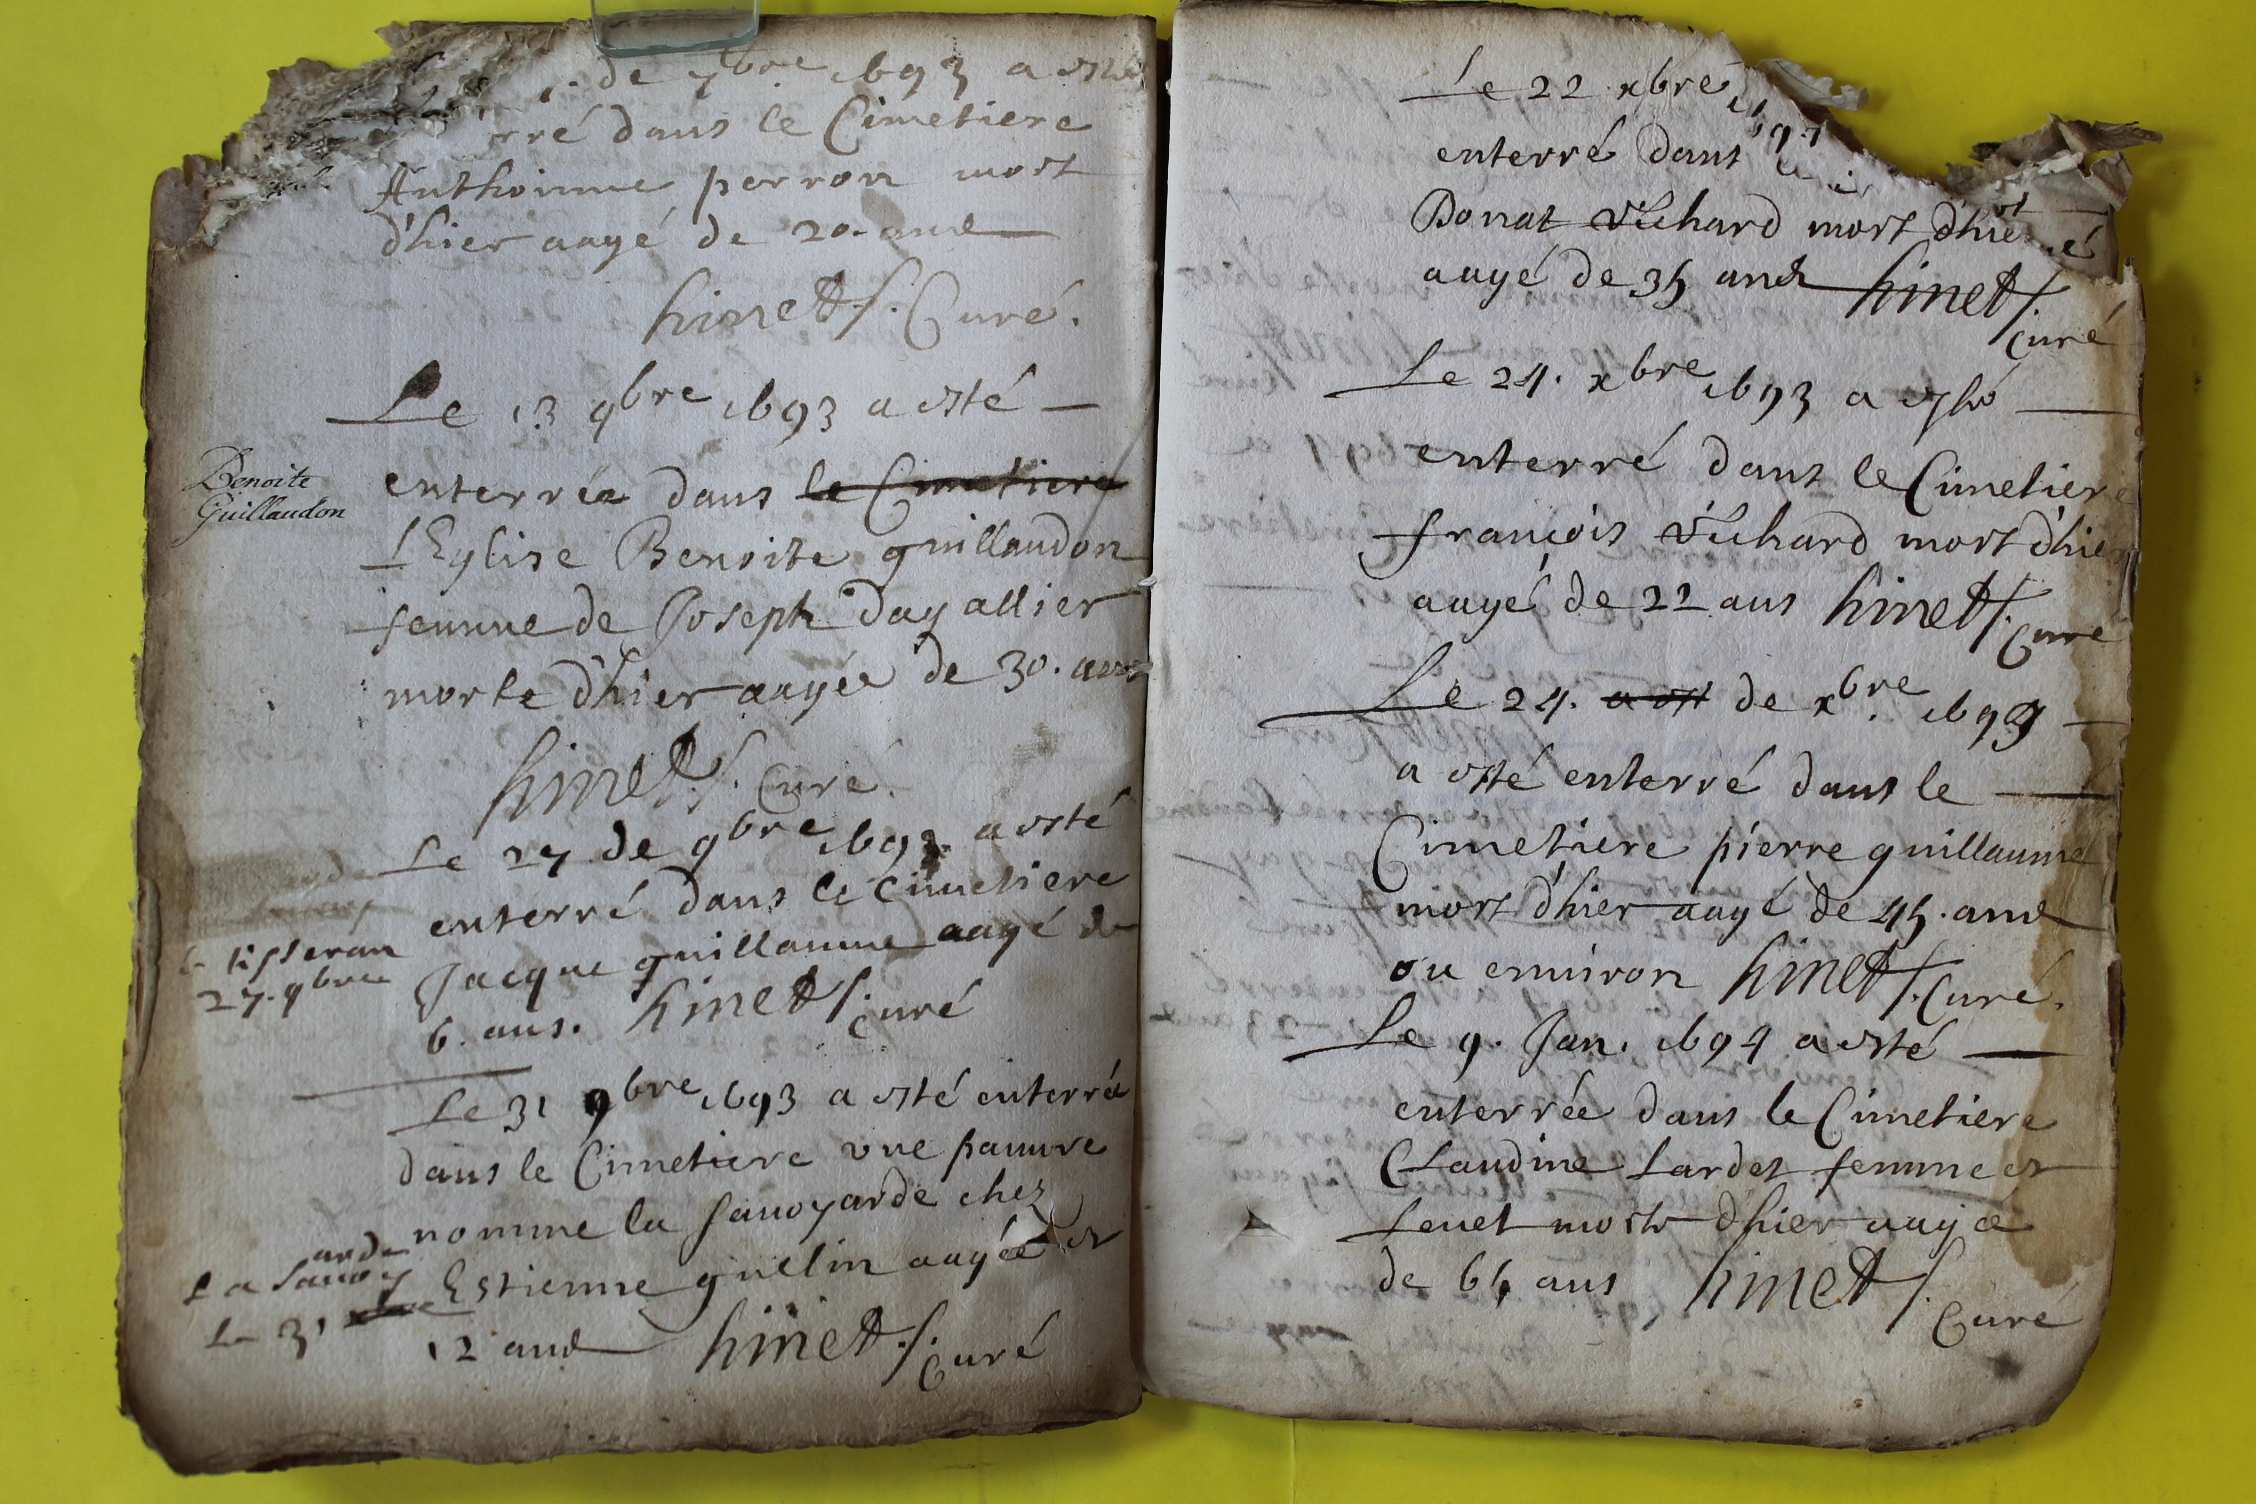 de 7bre 1693 a esté
rré dans le Cimetiere
Anthoinne perron mort
d'hier aagé de 20. ans
hinet Curé.
Le 13 9bre 1693 a esté
Benoite
Guillaudon
enterrée dans le Cimetiere
l'Eglise Benoite guillaudon
femme de Joseph dagallier
morte d'hier aagée de 30. ans
hinet Curé.
Le 27 de 9bre 1693 a esté
enterré dans le cimetiere
tisseran
27. 9bre
Jacque guillaume aagé de
6. ans. hinet curé
Le 31 9bre 1693 a esté enterrée
dans le Cimetiere une pauure
nomme la sauoyarde chez
La Sauoyarde
Le 31
Estienne guelin aagée
12 ans hinet curé
Le 22 xbre
enterré dans
Donat vichard mort d'hier
aagé de 35 ans hinet
curé
Le 24. xbre 1693 a esté
enterré dans le Cimetiere
françois vichard mort d'hier
aagé de 22 ans hinet
Curé
Le 24. a est de xbre 1693
a esté enterré dans le
Cimetiere pierre guillaume
mort d'hier aagé de 45. ans
ou enuiron hinet Curé.
Le 9. Jan. 1694 a esté
enterrée dans le Cimetiere
Claudine Lardet femme
morte d'hier aagée
de 65 ans hinet
Curé